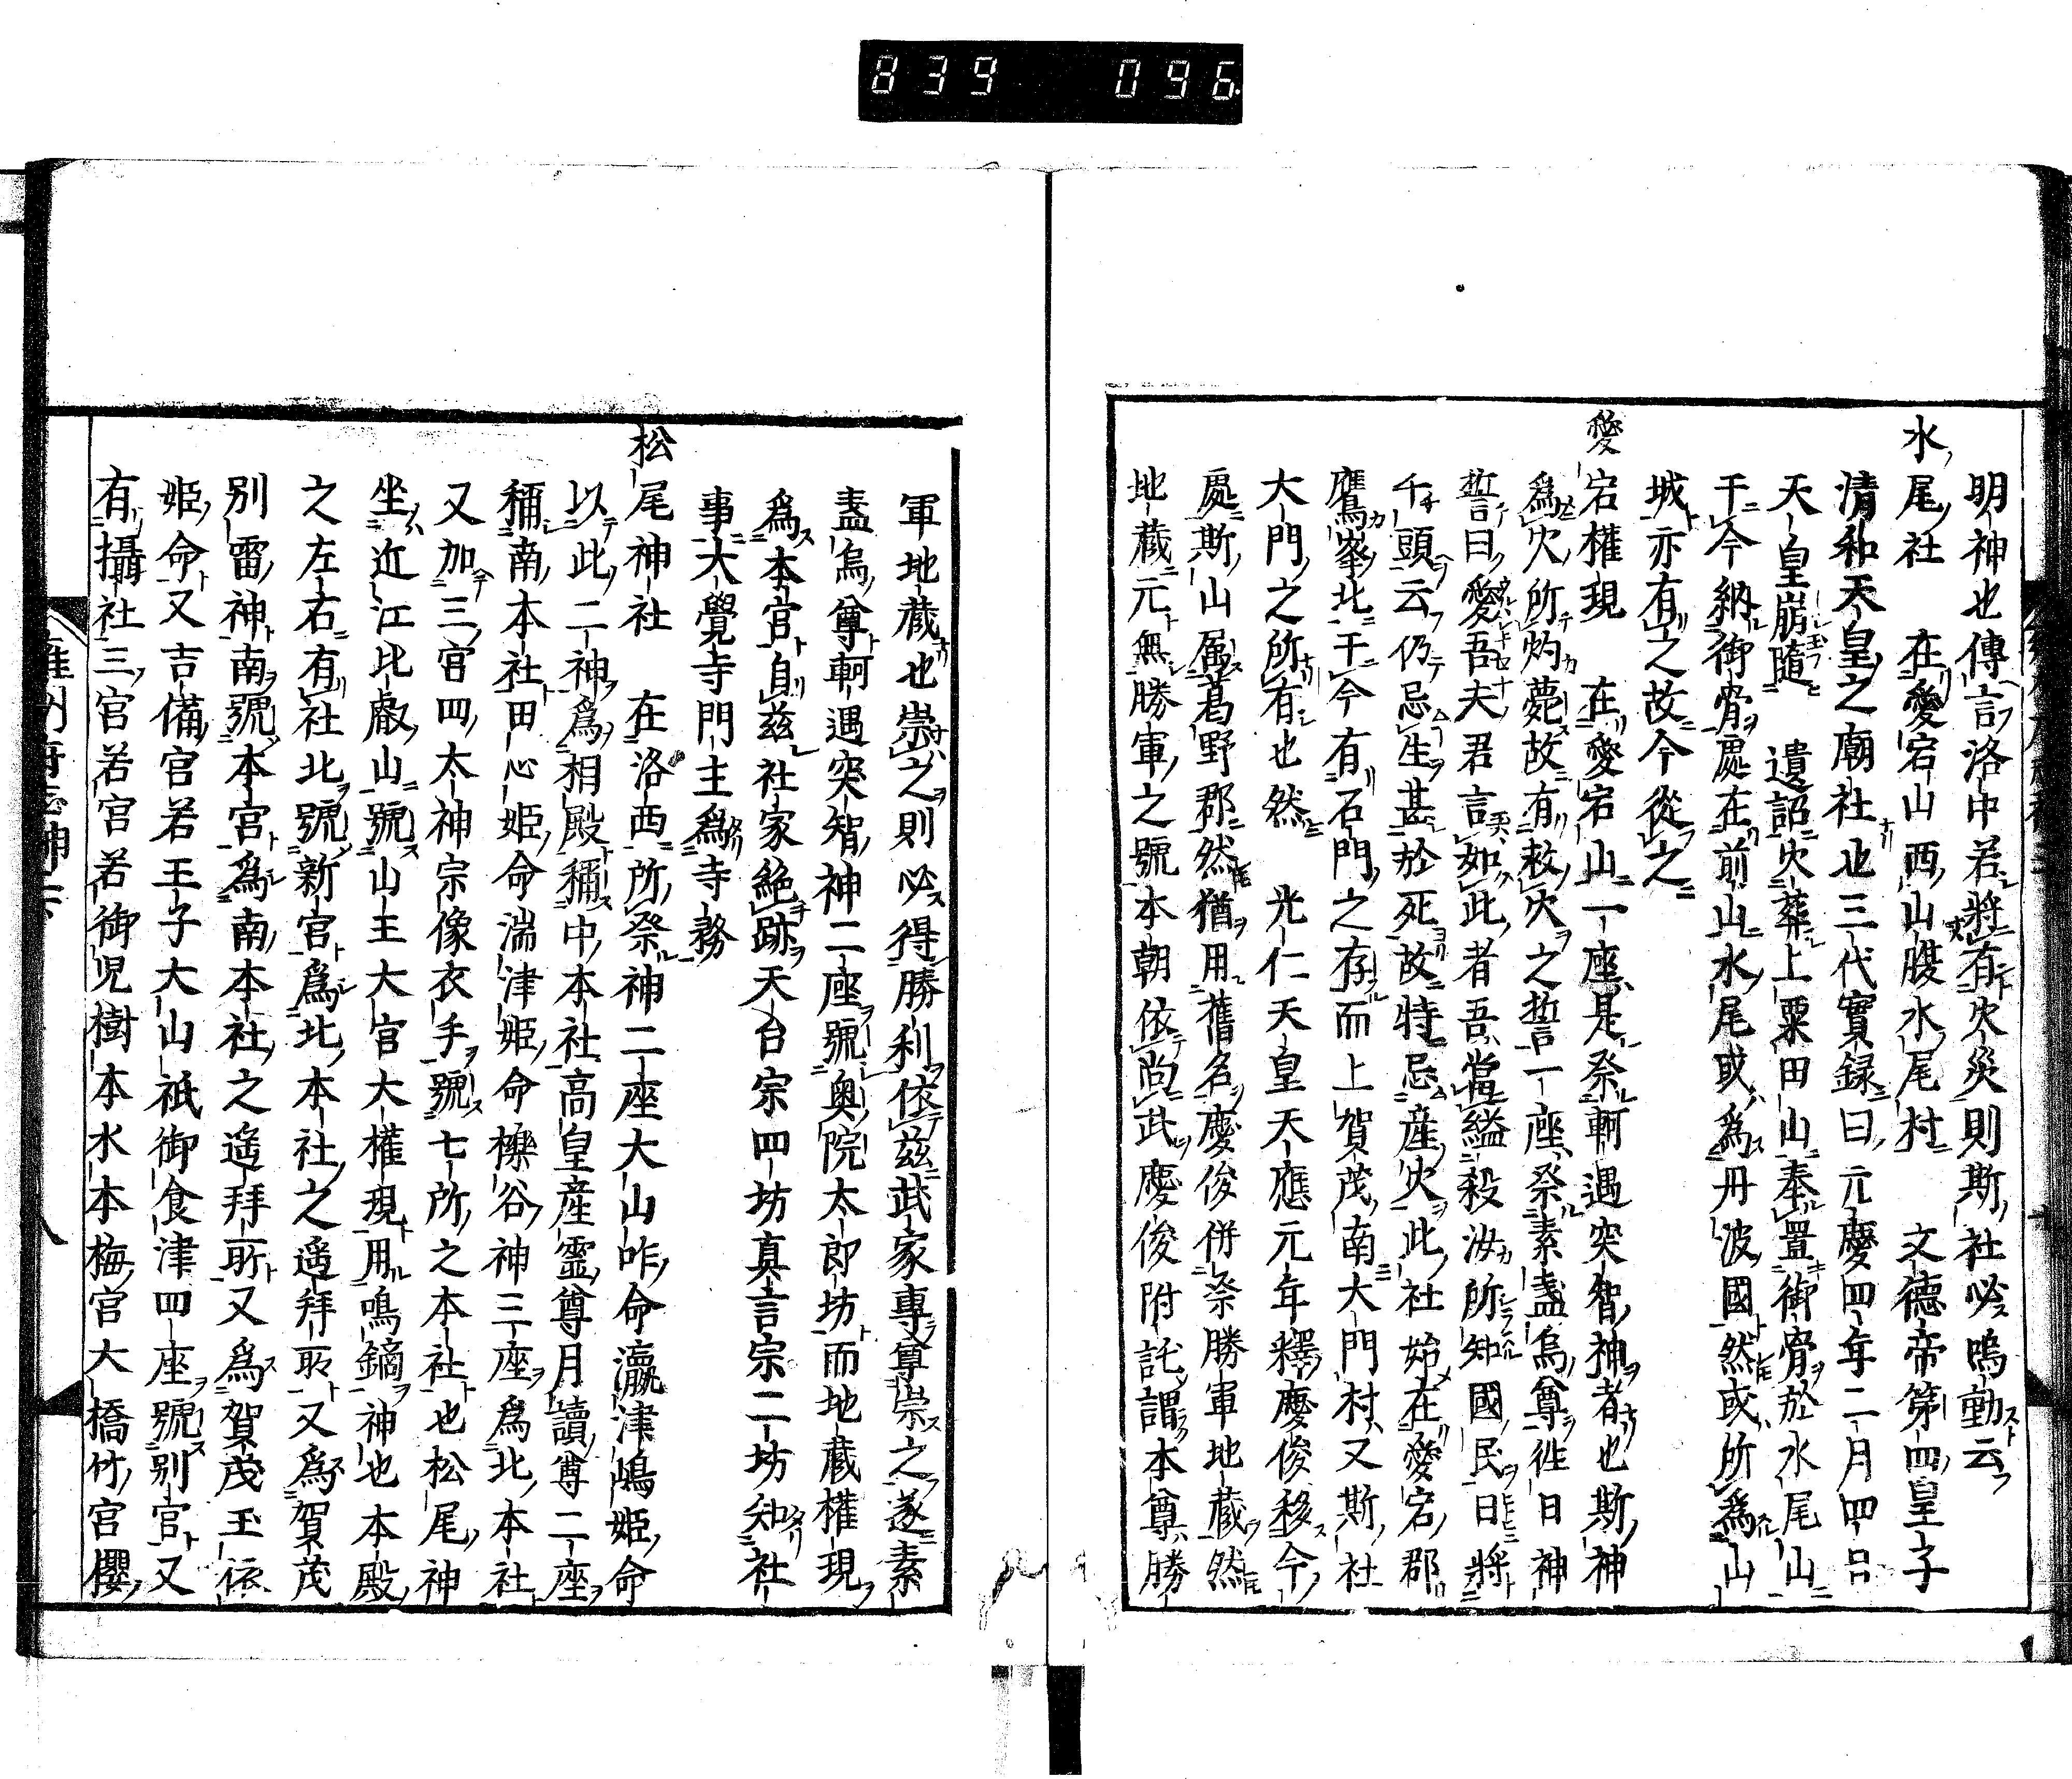 839 096
明神也傳言洛中若將有火災則斯社必鳴動云
水尾社 在愛宕山西山腰水尾村 文德帝第四皇子
清和天皇之廟社也三代實録曰元慶四年二月四日
天皇崩隨 遺詔火葬上粟田山奉置御骨於水尾山
于今納御骨處在前山水尾或爲丹波國然或所爲山
城亦有之故今從之
愛宕權現 在愛宕山一座是祭軻遇突智神者也斯神
爲火所灼薨故有救火之誓一座祭素盞烏尊徃日神
誓曰愛吾夫君言如此者吾當縊殺汝所知國民日將
千頭云仍忌生甚於死故特忌産火此社始在愛宕郡
鷹峯北于今有石門之存而上賀茂南大門村又斯社
大門之所有也然 光仁天皇天應元年釋慶俊移今
處斯山属葛野郡然猶用舊名慶俊併祭勝軍地藏然
地藏元無勝軍之號本朝依尚此慶俊附託謂本尊勝
軍地藏也崇之則必得勝利依茲武家專尊崇之遂素
盞烏尊軻遇突智神二座號奥院太郎坊而地藏權現
爲本宮自茲社家絶跡天台宗四坊真言宗二坊知社
事大覺寺門主爲寺務
松尾神社 在洛西所祭神二座大山咋命瀛津嶋姫命
以此二神爲相殿稱中本社高皇産靈尊月讀尊二座
稱南本社田心姫命湍津姫命櫟谷神三座爲北本社
又加三宮四太神宗像衣手號七所之本社也松尾神
坐近江比叡山號山王大宮大權現用鳴鏑神也本殿
之左右有社北號新宮爲北本社之遥拜所又爲賀茂
别雷神南號本宮爲南本社之遥拜所又爲賀茂玉依
姫命又吉備宮若王子大山祇御食津四座號别宮又
有攝社三宮若宮若御児樹本水本梅宮大橋竹宮櫻